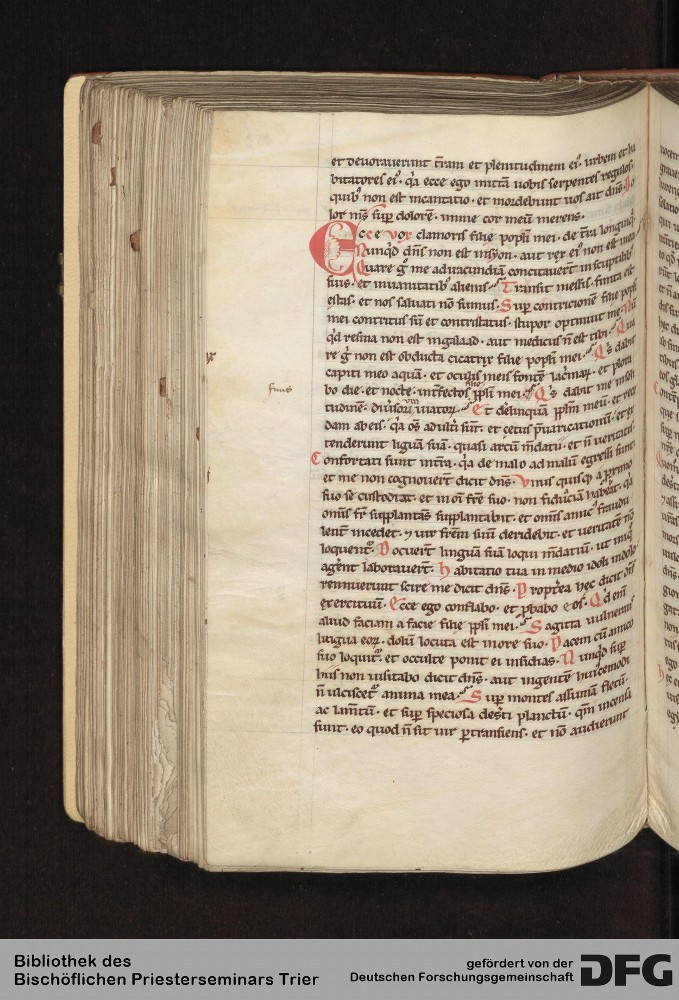 et deuorauerunt t̄ram et plenitudinem ei᷒· urbem et ha
bitatores ei᷒· q̇a ecce ego mittā uobis serpentes regulos·
quib᷒ non est incantatio· et mordebunt uos ait dn̄s· Do
lor m̄s sup̄ dolorē· in me cor meū merens·
Ecce vox clamoris filie pop̄li mei· de t̄ra longinq̄·
Nunq̇d dn̄s non est in syon· aut rex ei᷒ non est in ea
Quare ḡ me ad iracundiā concitauer̄t in sculptilib᷒
suis· et in uanitatib᷒ alienis· Transiit messis· finita est
estas· et nos saluati nō sumus· Sup̄ contricionē filie pop̄li
mei contritus sū et contristatus· stupor optinuit me· Nū
q̇d resina non est in galaad· aut medicus n̄ est ibi· Qua
re ḡ non est obducta cicatrix filie pop̄li mei· Q̇s dabit
capiti meo aquā· et oculis meis fontē lac̄mar̄· et plora
finis
bo die· et nocte· int̄fectos filie pp̄li mei· Q̇s dabit me in soli
viii
tudinē· diu̇sorī uiatoꝝ· Et derelinquā pp̄lm meū· et rece
dam ab eis· q̇a om̄s adult̄i sunt· et cetus p̄uaricationū· et ex
tenderunt liguā suā· quasi arcū m̄datii· et n̄ ueritatis·
Confortati sunt in t̄ra· q̇a de malo ad malū egressi sunt·
et me non cognouer̄t dicit dn̄s· Vnus quisq̄ a p̄ximo
suo se custodiat· et in oī fr̄e suo· non fiduciā habeat· q̇a
om̄is fr̄ supplantās supplantabit· et om̄is amic᷒ fraudu
lent̄ incedet· ⁊ uir frem̄ suū deridebit· et ueritatē nō
loquent᷑· Docuer̄t linguā suā loqui m̄datiū· ut iniq̄
agēnt laborauer̄t· Habitatio tua in medio doli in dolo
rennuerunt scire me dicit dn̄s· Propt̄ea hec dicit dn̄s
exercituū· Ecce ego conflabo· et p̄babo eos· Q̇d enī
aliud faciam a facie filie pp̄li mei· Sagitta uulnerans
lingua eoꝝ· dolū locuta est in ore suo· Pacem cū amico
suo loquit᷑· et occulte ponit ei insidias· Nunq̇d sup̄
his non uisitabo dicit dn̄s· aut in gentē hui᷒cemodi
n̄ ulciscet᷑ anima mea· Sup̄ montes assumā fletū·
ac lam̄tū· et sup̄ speciosa des̄ti planctū· qm̄ incensa
sunt· eo quod n̄ sit uir p̄transiens· et nō audierunt
Bibliothek des
Bischöflichen Priesterseminars Trier
gefördert von der
Deutschen Forschungsgemeinschaft
DFG